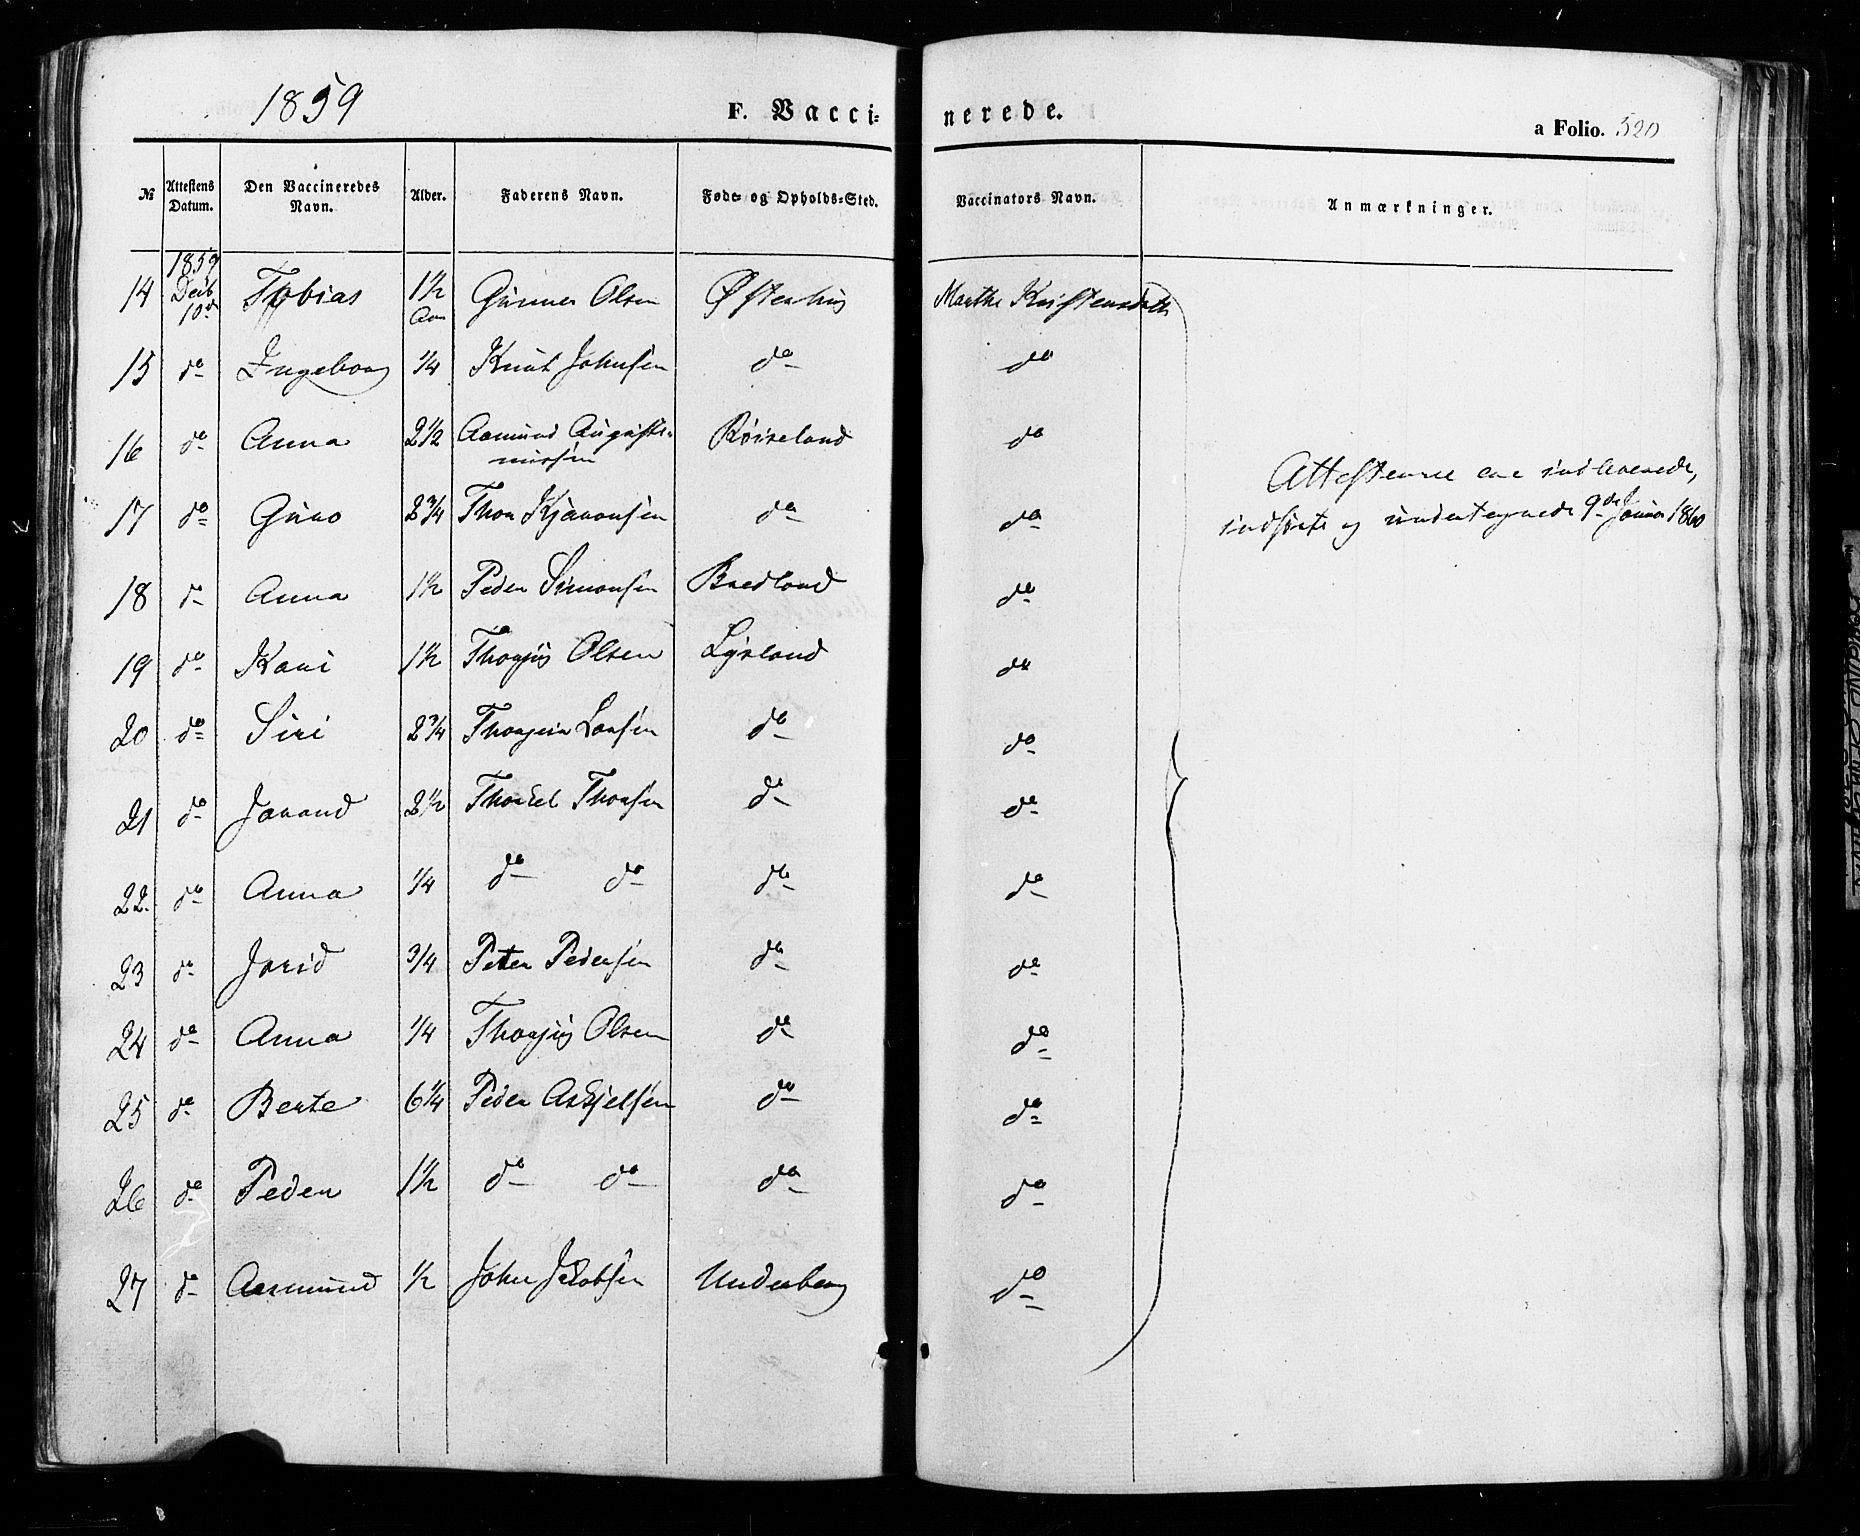 1859
F. Vacci= nerede.
a Folio. 520
№ | Attestens Datum. | Den Vaccineredes Navn. | Alder. | Faderens Navn. | Føde- og Opholds-Sted. | Vaccinators Navn. | Anmærkninger.
14 | 1859 Decb 10de | Tobias | 1½ Aar | Gunner Olsen | Østerhus | Marthe Kristensdatt
15 | do | Ingeborg | ¼ | Knut Johnsen | do | do
16 | do | Anna | 2½ | Aamund Augusti-
nussen | Røiseland | do
Attesterne ere indleverede,
17 | do | Guro | 2¾ | Thor Kjæraasen | do | do
indførte og undertegnede 9de Januar 1860
18 | do | Anna | 1½ | Peder Simonsen | Bredland | do
19 | do | Kari | 1½ | Thorjus Olsen | Lysland | do
20 | do | Siri | 2¾ | Thorjus Larsen | do | do
21 | do | Jorand | 2½ | Thorkel Thorsen | do | do
22. | do | Anna | ¼ | do do | do | do
23 | do | Jorid | ¾ | Peter Pedersen | do | do
24 | do | Anna | ¼ | Thorjus Olsen | do | do
25 | do | Berte | 6¼ | Peder Askjelsen | do | do
26 | do | Peder | 1½ | do do | do | do
27 | do | Aasmund | ½ | John Jakobsen | Underberg | do